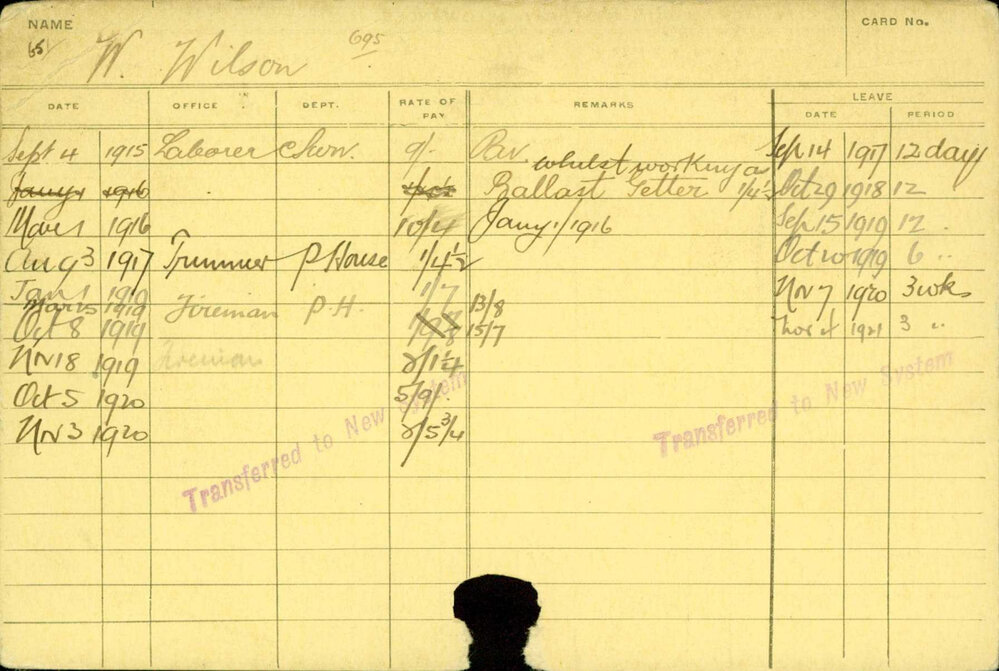 NAME
CARD No.
65
W. Wilson 695
DATE OFFICE DEPT. RATE OF PAY REMARKS LEAVE
DATE PERIOD
Sept 4 1915 Laborer 9/- Sep 14 1917 12 days
whilst working as
Jany 1 1916 Ballast Setter 1/4½ Oct 29 1918 12
Mar 1 1916 10/4 Jany 1/1916 Sep 15 1919 12
Aug 3 1917 Trimmer P House 1/4½ Oct 10 1919 6 "
Jan 1 1919 1/7 Nv 7 1920 3 wks
1919 Fireman P.H. 13/8
Oct 8 1919 15/7 1921 3 "
Nv 18 1919 Fireman 2/1¼
Oct 5 1920 5/9/-
Nv 3 1920 2/5¾
Transferred to New System
Transferred to New System